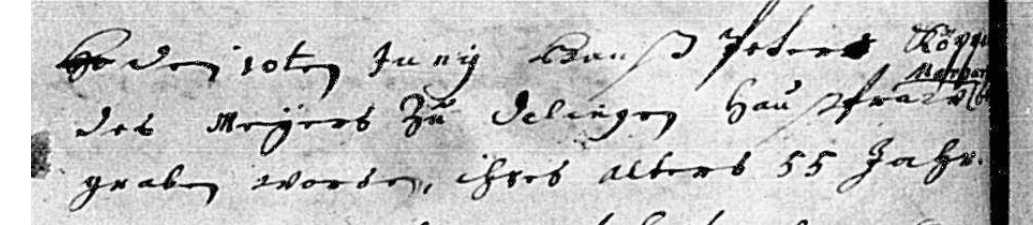 den 10ten Juny Hanß Peters
des Meyers Zu Delingen Haußfraw be
graben worden, ihres alters 55 Jahr.